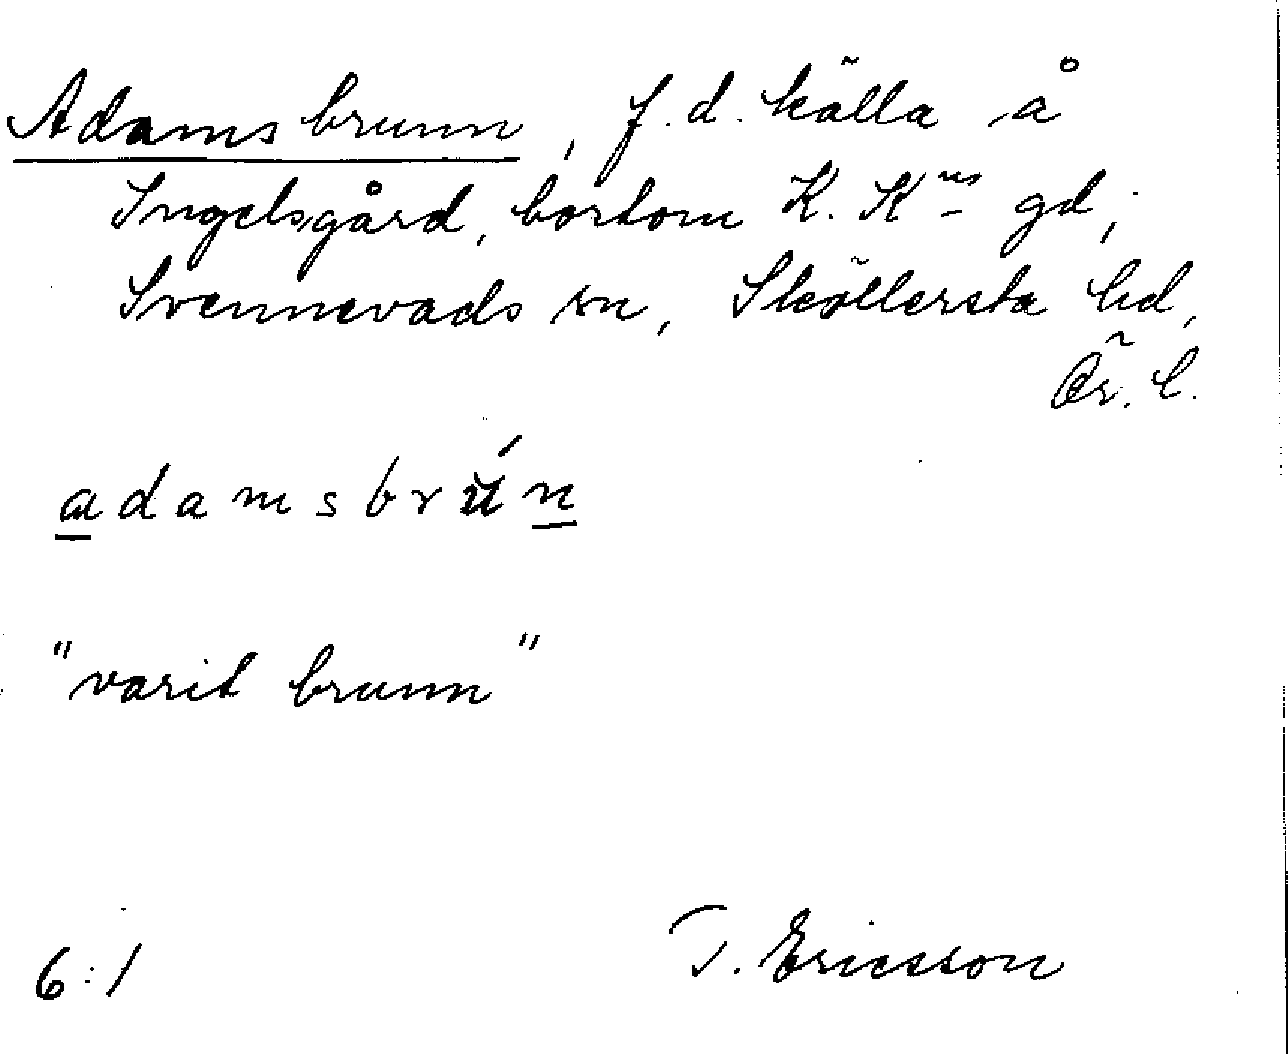 Adamsbrunn, f.d. källa å
Ingelsgård, bortom K. K:ns gd;
Svennevads sn, Sköllersta hd,
Ör. l.
adamsbrún
"varit brunn"
6:1
T. Ericsson